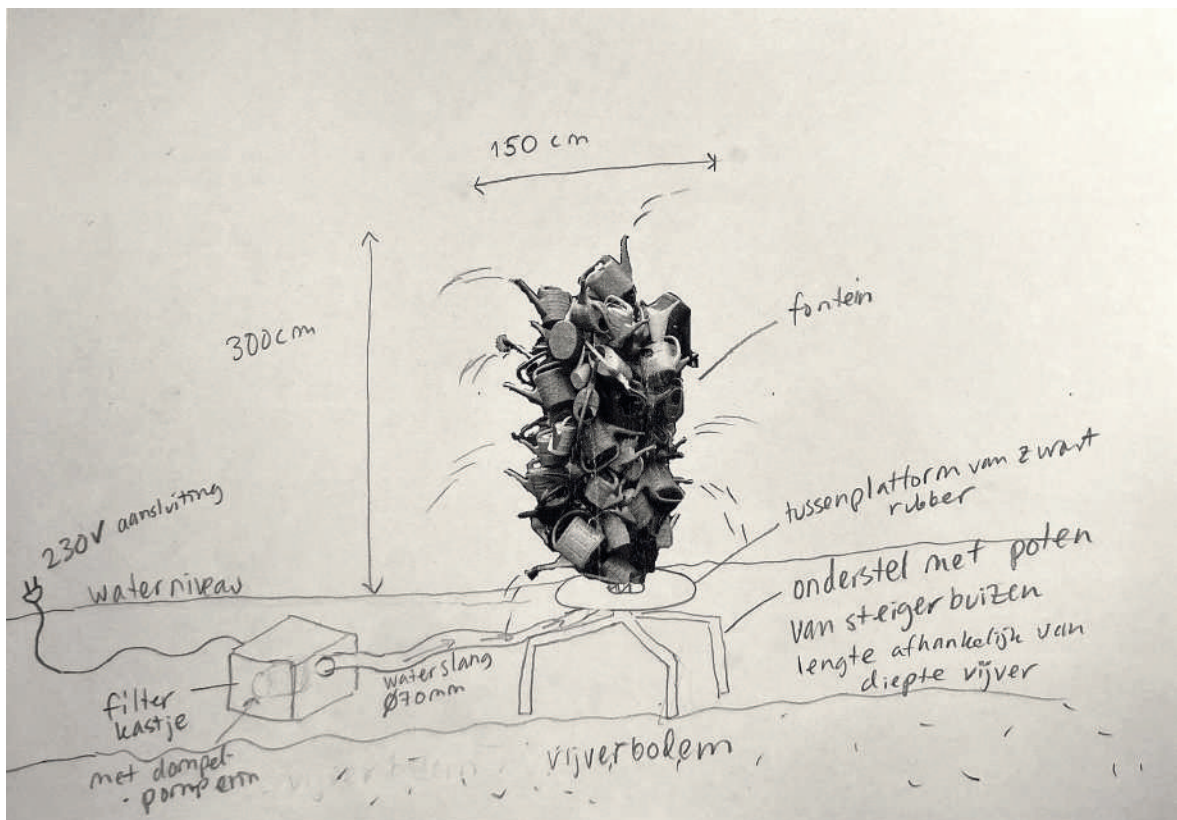 150 cm
300cm
fontein
tussenplatform van zwart
rubber
230V aansluiting
waterniveau
onderstel met poten
van steigerbuizen
lengte afhankelijk van
diepte vijver
waterslang
Ø70mm
filter
kastje
met dompel-
pomp erin
vijverbodem